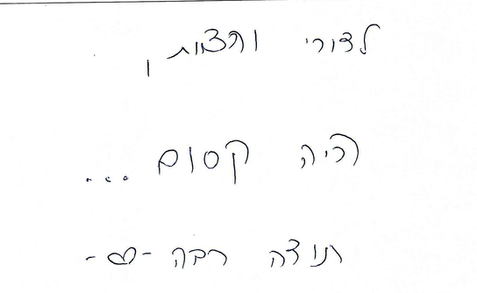 לדורי והצוות,
היה קסום...
תודה רבה -♡-